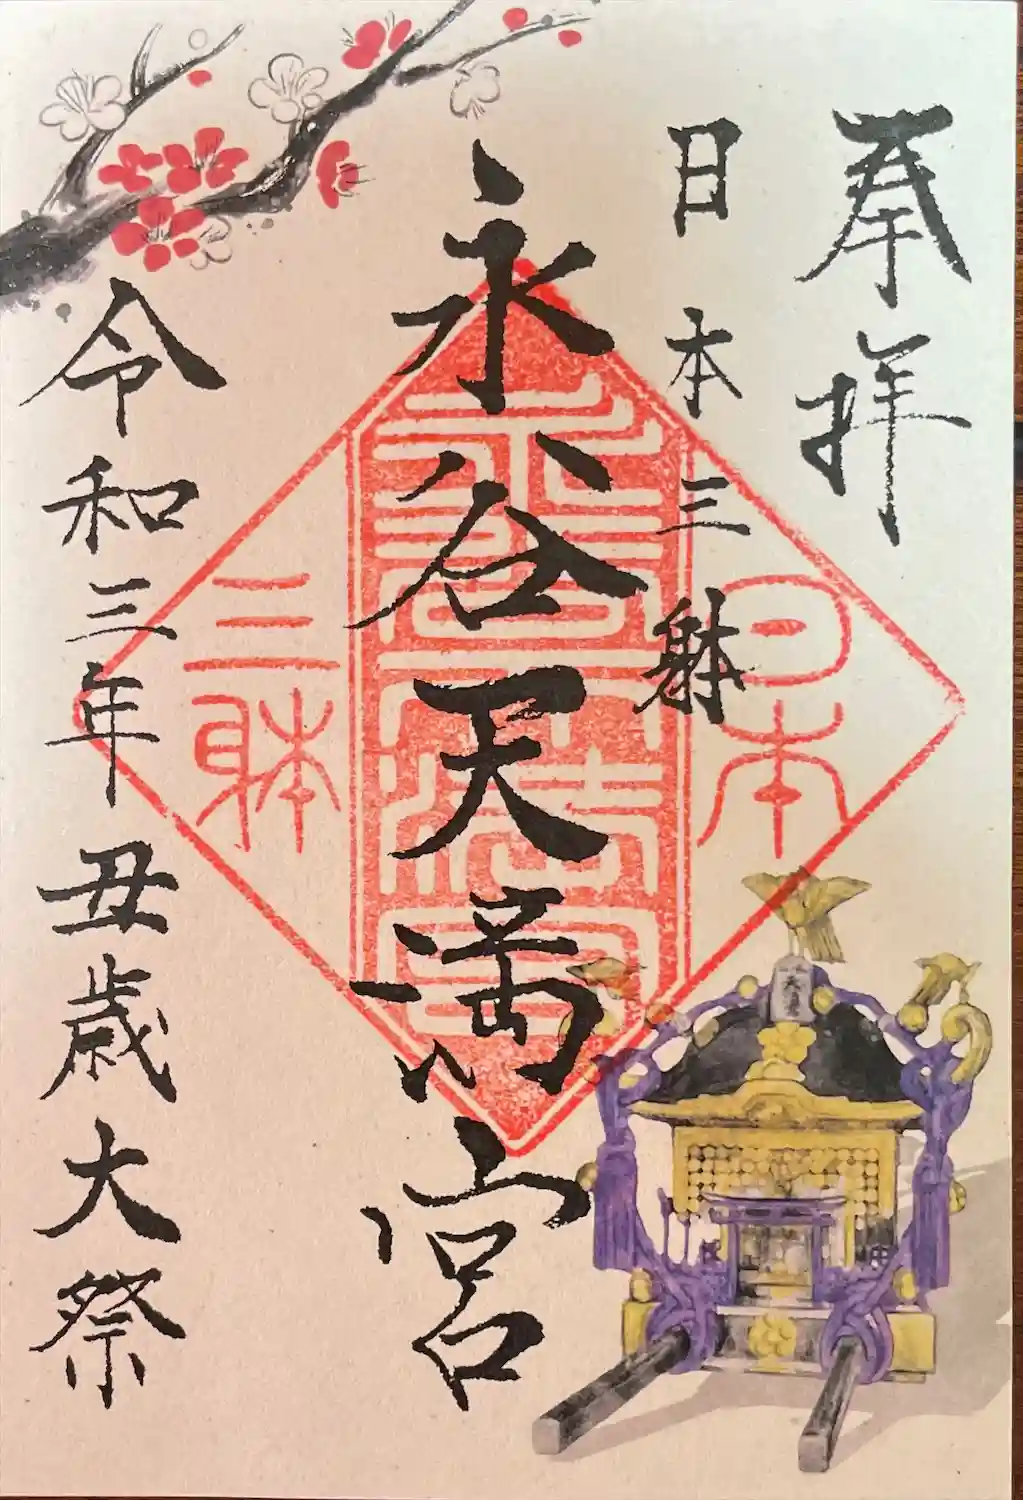 奉拜
日本三躰
永谷天満宮
日本
三躰
永谷天満宮
令和三年丑歳大祭